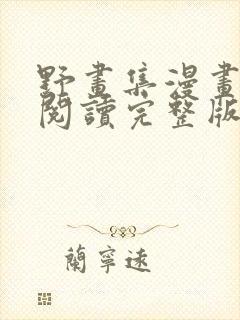 野畫集漫畫
閱讀完整版
蘭寧遠